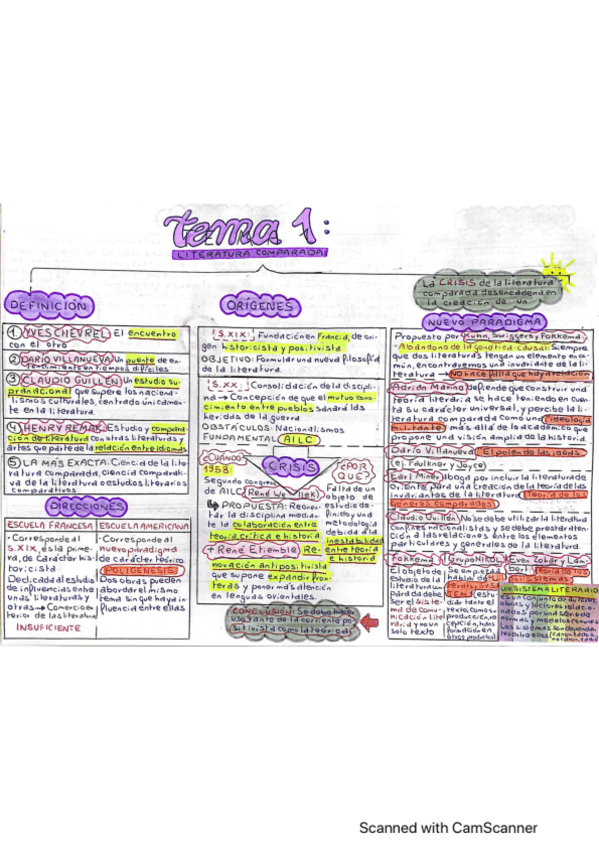 tema 1:
LITERATURA COMPARADA
DEFINICIÓN
1) YVES CHEVREL: El encuentro
con el otro
2) DARÍO VILLANUEVA: Un puente de en-
tendimiento en tiempos difíciles
3) CLAUDIO GUILLÉN: Un estudio su-
pranacional que supere los nacio-
nalismos culturales, centrado únicamen-
te en la literatura.
4) HENRY REMAK: Estudio y compara-
ción de literatura con otras literaturas y
artes que parte de la relación entre idiomas
5) LA MÁS EXACTA: Ciencia de la lite-
ratura comparada, ciencia comparati-
va de la literatura o estudios literarios
comparativos
DIRECCIONES
ESCUELA FRANCESA
- Corresponde al
S.XIX, es la prime-
ra, de carácter his-
toricista
Dedicada al estudio
de influencias entre
unas literaturas y
otras → Comercio ex-
terior de las literaturas
INSUFICIENTE
ESCUELA AMERICANA
- Corresponde al
nuevo paradigma
de carácter teórico
POLIGÉNESIS:
Dos obras pueden
abordar el mismo
tema sin que haya in-
fluencia entre ellas
ORÍGENES
S.XIX: Fundación en Francia, de ori-
gen historicista y positivista
OBJETIVO: Formular una nueva filosofía
de la literatura.
S.XX: Consolidación de la discipli-
na → Concepción de que el mutuo cono-
cimiento entre pueblos sanará las
heridas de la guerra
OBSTÁCULOS: Nacionalismos
FUNDAMENTAL: AILC
CRISIS
¿CUÁNDO?
1958:
Segundo congreso
de AILC, René Wellek
→ PROPUESTA: Reorien-
tar la disciplina median-
te la colaboración entre
teoría, crítica e historia
+ René Etiemble: Re-
novación antipositivista
que supone expandir fron-
teras y poner más atención
en lenguas orientales.
¿POR QUÉ?
Falta de un
objeto de
estudio de-
finido y una
metodología
debida a la
inestabilidad
entre teoría
e historia
CONCLUSIÓN: Se debe hacer
uso tanto de la corriente po-
sitivista como la teórica
La CRISIS de la literatura
comparada desencadena en
la creación de un
NUEVO PARADIGMA
Propuesto por Kuhn, Swiggers y Fokkema
- Abandono de la genética causal: Siempre
que dos literaturas tengan un elemento en co-
mún, encontraremos una invariante de la li-
teratura → NO hace falta que haya relación
Adrian Marino: defiende que construir una
teoría literaria se hace teniendo en cuen-
ta su carácter universal, y percibe la li-
teratura comparada como una ideología
militante más allá de lo académico que
propone una visión amplia de la historia.
Darío Villanueva: El polen de las ideas
(ej. Faulkner y Joyce)
Earl Miner: Aboga por incluir la literatura de
Oriente para una creación de la teoría de las
invariantes de la literatura: Teoría de los
géneros comparados
Claudio Guillén: No se debe utilizar la literatura
con fines nacionalistas y se debe prestar aten-
ción a las relaciones entre los elementos
particulares y generales de la literatura.
Fokkema
El objeto de
estudio de la
literatura com-
parada debe
ser el sistema
de comu-
nicación lite-
raria y no un
solo texto
Grupo NIKOL
Se empieza a
hablar de
Even Zohar y Lam-
bert: Teoría de los
polisistemas
UN SISTEMA LITERARIO
es un conjunto de autores,
obras y lectores relacio-
nados por una serie de
normas y modelos comunes